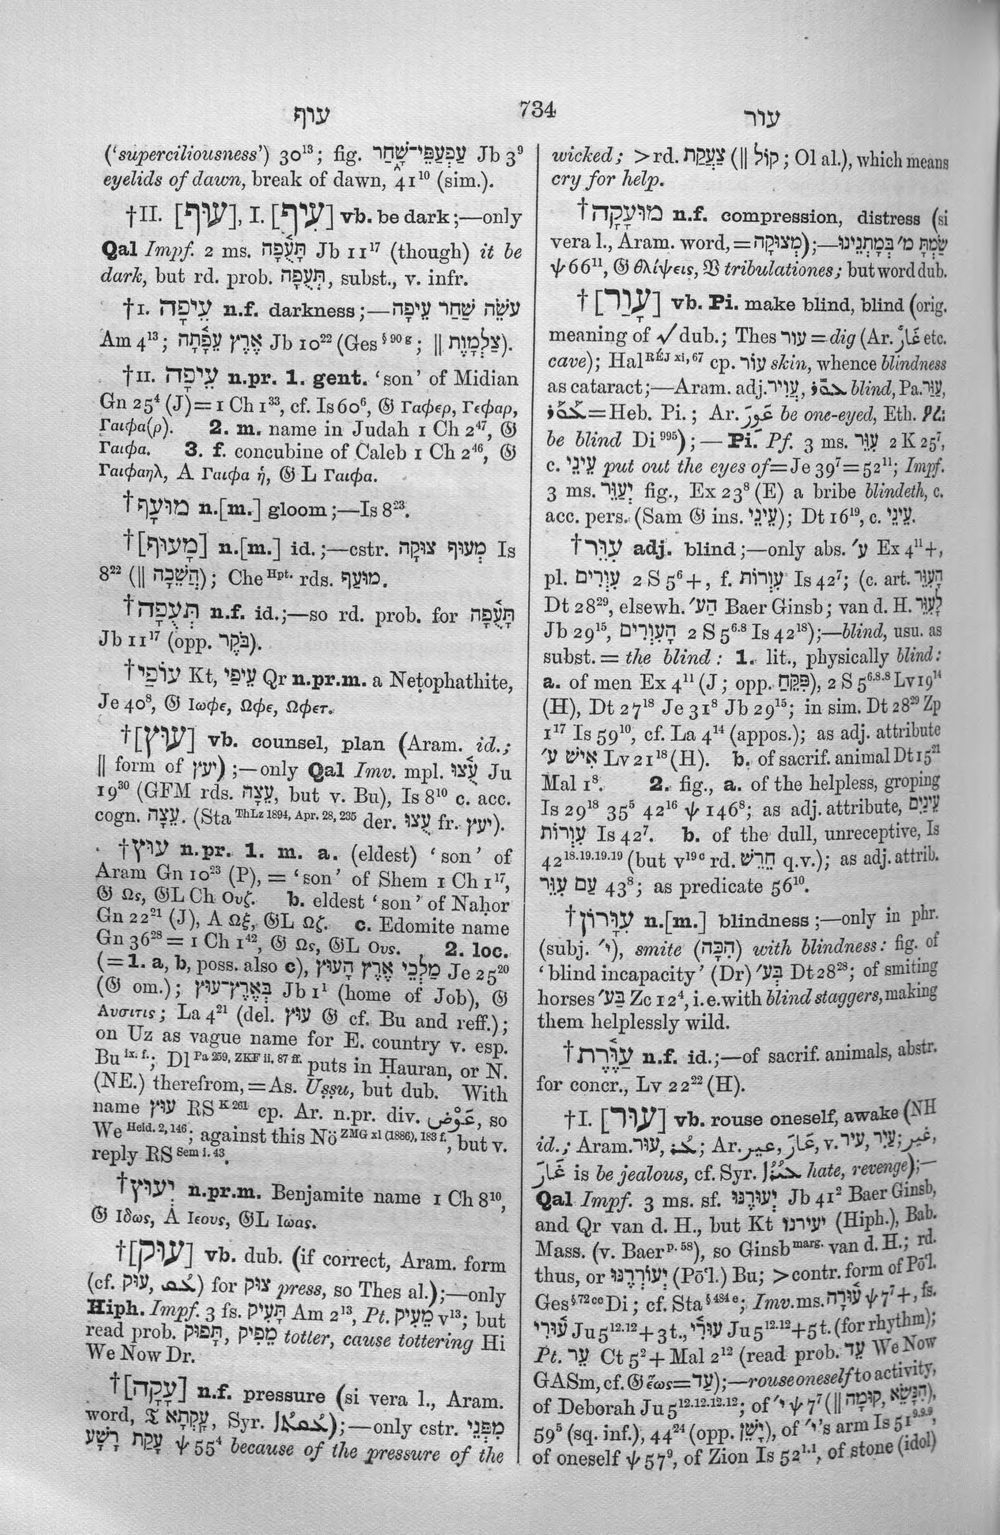 עוף
734
עור
('superciliousness') 30¹³; fig. עַפְעַפֵּי־שָׁ֑חַר Jb 3⁹
eyelids of dawn, break of dawn, 41¹⁰ (sim.).
†II. [עוּף], I. [עִיף] vb. be dark;—only
Qal Impf. 2 ms. תָּעֻ֫פָה Jb 11¹⁷ (though) it be
dark, but rd. prob. תְּעֻפָה, subst., v. infr.
†I. עֵיפָה n.f. darkness;—עֹשֵׂה שַׁחַר עֵיפָה
Am 4¹³; אֶרֶץ עֵפָ֫תָה Jb 10²² (Ges § 90 g; ‖ צַלְמָוֶת).
†II. עֵיפָה n.pr. 1. gent. 'son' of Midian
Gn 25⁴ (J)=1 Ch 1³³, cf. Is 60⁶, 𝔊 Γαφερ, Γεφαρ,
Γαιφα(ρ). 2. m. name in Judah 1 Ch 2⁴⁷, 𝔊
Γαιφα. 3. f. concubine of Caleb 1 Ch 2⁴⁶, 𝔊
Γαιφαηλ, A Γαιφα ἡ, 𝔊 L Γαιφα.
†מוּעָף n.[m.] gloom;—Is 8²³.
†[מָעוּף] n.[m.] id.;—cstr. מְעוּף צוּקָה Is
8²² (‖ חֲשֵׁכָה); Che Hpt. rds. מוּעַף.
†תְּעֻפָה n.f. id.;—so rd. prob. for תָּעֻ֫פָה
Jb 11¹⁷ (opp. בֹּקֶר).
†עוֹפַי Kt, עֵיפַי Qr n.pr.m. a Neṭophathite,
Je 40⁸, 𝔊 Ιωφε, Ωφε, Ωφετ.
†[עוּץ] vb. counsel, plan (Aram. id.;
‖ form of יעץ);—only Qal Imv. mpl. עֻ֫צוּ Ju
19³⁰ (GFM rds. עֵצָה, but v. Bu), Is 8¹⁰ c. acc.
cogn. עֵצָה. (Sta ThLz 1894, Apr. 28, 235 der. עֻצוּ fr. יעץ).
†עוּץ n.pr. 1. m. a. (eldest) 'son' of
Aram Gn 10²³ (P), = 'son' of Shem 1 Ch 1¹⁷,
𝔊 Ως, 𝔊L Ch Ουζ. b. eldest 'son' of Naḥor
Gn 22²¹ (J), A Ωξ, 𝔊L Ωζ. c. Edomite name
Gn 36²⁸ = 1 Ch 1⁴², 𝔊 Ως, 𝔊L Ους. 2. loc.
(= 1. a, b, poss. also c), מַלְכֵי אֶרֶץ הָעוּץ Je 25²⁰
(𝔊 om.); בְּאֶרֶץ־עוּץ Jb 1¹ (home of Job), 𝔊
Αυσιτις; La 4²¹ (del. עוּץ 𝔊 cf. Bu and reff.);
on Uz as vague name for E. country v. esp.
Bu ix. f.; Dl Pa 259, ZKF ii, 87 ff. puts in Ḥauran, or N.
(NE.) therefrom, = As. Uṣṣu, but dub. With
name עוּץ RS K 261 cp. Ar. n.pr. div. عَوْض, so
We Heid. 2, 146; against this Nö ZMG xl (1886), 183 f., but v.
reply RS Sem i. 43.
†יְעוּץ n.pr.m. Benjamite name 1 Ch 8¹⁰,
𝔊 Ιδως, A Ιεους, 𝔊L Ιωας.
†[עוּק] vb. dub. (if correct, Aram. form
(cf. עוּק, ܥܳܩ) for צוק press, so Thes al.);—only
Hiph. Impf. 3 fs. תָּעִיק Am 2¹³, Pt. מֵעִיק v¹³; but
read prob. תָּפוּק, מֵפִיק totter, cause tottering Hi
We Now Dr.
†[עָקָה] n.f. pressure (si vera l., Aram.
word, 𝔗 עָקְתָא, Syr. ܥܳܩܬܳܐ);—only cstr. מִפְּנֵי
עָקַת רָשָׁע ψ 55⁴ because of the pressure of the
wicked; >rd. צַעֲקַת (‖ קוֹל; Ol al.), which means
cry for help.
†מוּעָקָה n.f. compression, distress (si
vera l., Aram. word, = מְצוּקָה);—שַׂמְתָּ מ׳ בְּמָתְנֵינוּ
ψ 66¹¹, 𝔊 θλίψεις, 𝔙 tribulationes; but word dub.
†[עָוַר] vb. Pi. make blind, blind (orig.
meaning of √ dub.; Thes עור = dig (Ar. غَارَ etc.
cave); Hal RÉJ xi, 67 cp. עוֹר skin, whence blindness
as cataract;—Aram. adj. עֲוִיר, blind, Pa. עַוֵּר,
=Heb. Pi.; Ar. عَوِرَ be one-eyed, Eth.
be blind Di 995);—Pi. Pf. 3 ms. עִוֵּר 2 K 25⁷,
c. עֵינֵי put out the eyes of=Je 39⁷=52¹¹; Impf.
3 ms. יְעַוֵּר fig., Ex 23⁸ (E) a bribe blindeth, c.
acc. pers. (Sam 𝔊 ins. עֵינֵי); Dt 16¹⁹, c. עֵינֵי.
†עִוֵּר adj. blind;—only abs. ע׳ Ex 4¹¹+,
pl. עִוְרִים 2 S 5⁶+, f. עִוְרוֹת Is 42⁷; (c. art. הָעִוֵּר
Dt 28²⁹, elsewh. הַע׳ Baer Ginsb; van d. H. לָעִוֵּר
Jb 29¹⁵, הָעִוְרִים 2 S 5⁶·⁸ Is 42¹⁸);—blind, usu. as
subst. = the blind: 1. lit., physically blind:
a. of men Ex 4¹¹ (J; opp. פִּקֵּחַ), 2 S 5⁶·⁸·⁸ Lv 19¹⁴
(H), Dt 27¹⁸ Je 31⁸ Jb 29¹⁵; in sim. Dt 28²⁹ Zp
1¹⁷ Is 59¹⁰, cf. La 4¹⁴ (appos.); as adj. attribute
אִישׁ ע׳ Lv 21¹⁸ (H). b. of sacrif. animal Dt 15²¹
Mal 1⁸. 2. fig., a. of the helpless, groping
Is 29¹⁸ 35⁵ 42¹⁶ ψ 146⁸; as adj. attribute, עֵינַיִם
עִוְרוֹת Is 42⁷. b. of the dull, unreceptive, Is
42¹⁸·¹⁹·¹⁹·¹⁹ (but v¹⁹ᶜ rd. חֵרֵשׁ q.v.); as adj. attrib.
עַם עִוֵּר 43⁸; as predicate 56¹⁰.
†עִוָּרוֹן n.[m.] blindness;—only in phr.
(subj. י׳), smite (הִכָּה) with blindness: fig. of
'blind incapacity' (Dr) בְּע׳ Dt 28²⁸; of smiting
horses בַּע׳ Zc 12⁴, i.e. with blind staggers, making
them helplessly wild.
†עַוֶּ֫רֶת n.f. id.;—of sacrif. animals, abstr.
for concr., Lv 22²² (H).
†I. [עוּר] vb. rouse oneself, awake (NH
id.; Aram. עוּר, ; Ar. غَارَ, v. עִיר, ;
غَارَ is be jealous, cf. Syr. hate, revenge);—
Qal Impf. 3 ms. sf. יְעוּרֶנּוּ Jb 41² Baer Ginsb,
and Qr van d. H., but Kt יעירנו (Hiph.), Bab.
Mass. (v. Baer p. 58), so Ginsb marg. van d. H.; rd.
thus, or יְעוֹרְרֶנּוּ (Pōʻl.) Bu; >contr. form of Pōʻl.
Ges § 72 cc Di; cf. Sta § 484 e; Imv. ms. עוּרָה ψ 7⁷+, fs.
עוּרִי Ju 5¹²·¹²+3 t., עוּרִ֫י Ju 5¹²·¹²+5 t. (for rhythm);
Pt. עֵר Ct 5²+ Mal 2¹² (read prob. עֵד We Now
GASm, cf. 𝔊 ἕως=עַד);—rouse oneself to activity,
of Deborah Ju 5¹²·¹²·¹²·¹²; of י׳ ψ 7⁷ (‖ הִנָּשֵׂא, קוּמָה),
59⁵ (sq. inf.), 44²⁴ (opp. יָשֵׁן), of י׳'s arm Is 51⁹·⁹·⁹,
of oneself ψ 57⁹, of Zion Is 52¹·¹, of stone (idol)